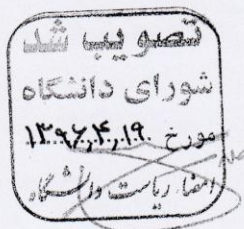 تصویب شد
شورای دانشگاه
مورخ ۱۳۹۶,۴,۱۹
امضا ریاست دانشگاه